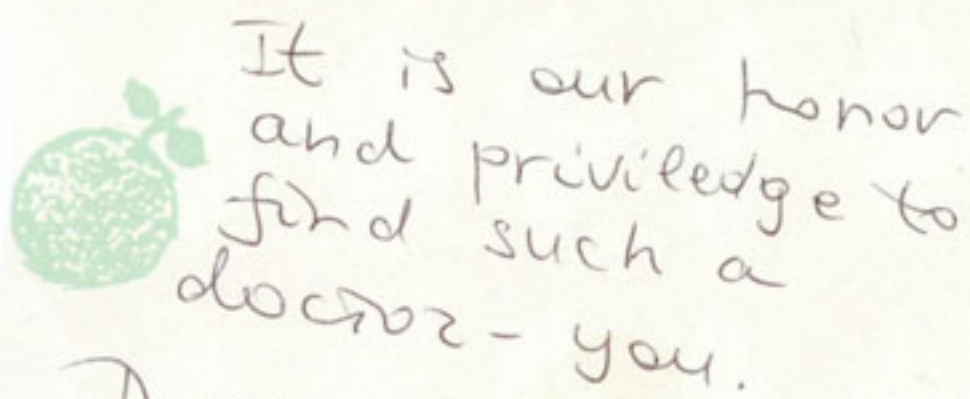 It is our honor
and priviledge to
find such a
doctor - you.